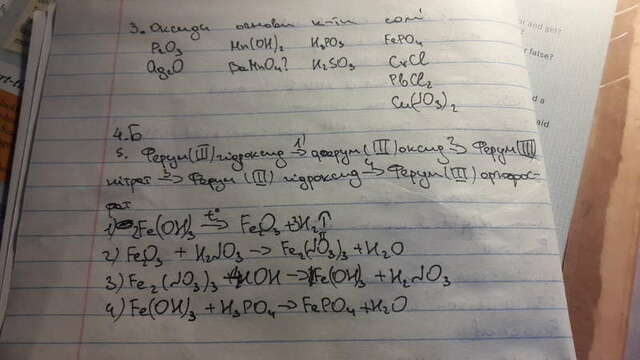 3. Оксиди основи к-ти солі
P₂O₃ Mn(OH)₂ H₃PO₃ FePO₄
Ag₂O BaMnO₄? H₂SO₃ CrCl
PbCl₂
Cu(NO₃)₂
4. Б
5. Ферум(III)гідроксид 1→ ферум(III)оксид 2→ Ферум(III)
нітрат 3→ Ферум (III) гідроксид 4→ Ферум(III) ортофос-
фат
1) 2Fe(OH)₃ t°→ Fe₂O₃ + 3H₂↑
2) Fe₂O₃ + H₂NO₃ → Fe₂(NO₃)₃ + H₂O
3) Fe₂(NO₃)₃ + HOH → Fe(OH)₃ + H₂NO₃
4) Fe(OH)₃ + H₃PO₄ → FePO₄ + H₂O
and get?
false?
d a
said